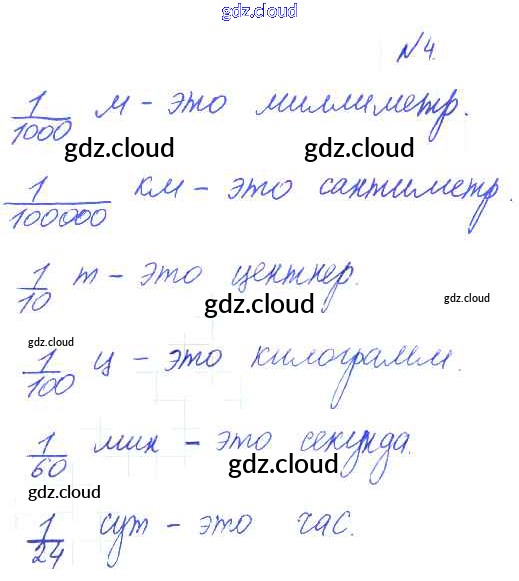 gdz.cloud
№4.
1/1000 м - это миллиметр.
gdz.cloud gdz.cloud
1/100000 км - это сантиметр.
1/10 т - это центнер.
gdz.cloud gdz.cloud
gdz.cloud
1/100 ц - это килограмм.
1/60 мин - это секунда.
gdz.cloud
gdz.cloud
1/24 сут - это час.